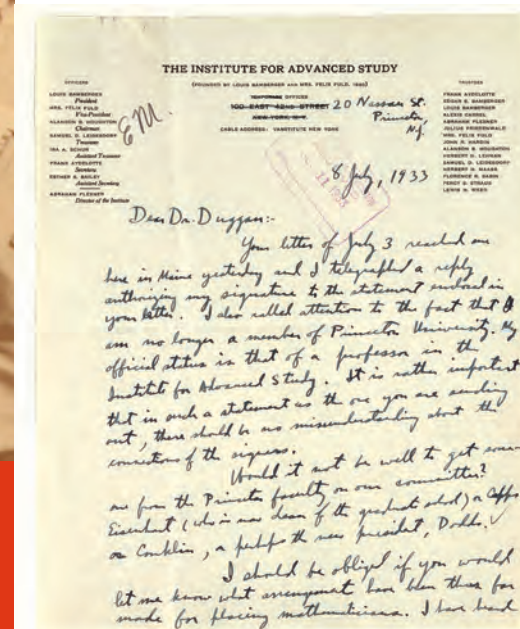 THE INSTITUTE FOR ADVANCED STUDY
(FOUNDED BY LOUIS BAMBERGER AND MRS. FELIX FULD, 1930)
OFFICERS
LOUIS BAMBERGER
President
MRS. FELIX FULD
Vice-President
ALANSON B. HOUGHTON
Chairman
SAMUEL D. LEIDESDORF
Treasurer
IRA A. SCHUR
Assistant Treasurer
FRANK AYDELOTTE
Secretary
ESTHER S. BAILEY
Assistant Secretary
ABRAHAM FLEXNER
Director of the Institute
EM.
OFFICES
100 EAST 42ND STREET 20 Nassau St.
NEW YORK, N.Y. Princeton,
N.J.
CABLE ADDRESS: VANSTITUTE NEW YORK
TRUSTEES
FRANK AYDELOTTE
EDGAR S. BAMBERGER
LOUIS BAMBERGER
ALEXIS CARREL
ABRAHAM FLEXNER
JULIUS FRIEDENWALD
MRS. FELIX FULD
JOHN R. HARDIN
ALANSON B. HOUGHTON
HERBERT H. LEHMAN
SAMUEL D. LEIDESDORF
HERBERT H. MAASS
FLORENCE R. SABIN
PERCY S. STRAUS
LEWIS H. WEED
8 July, 1933
Dear Dr. Duggan:-
Your letter of July 3 reached me
here in Maine yesterday and I telegraphed a reply
authorizing my signature to the statement enclosed in
your letter. I also called attention to the fact that I
am no longer a member of Princeton University. My
official status is that of a professor in the
Institute for Advanced Study. It is rather important
that in such a statement as the one you are sending
out, there should be no misunderstanding about the
connections of the signers.
Would it not be well to get some-
one from the Princeton faculty on our committee?
Eisenhart (who is now dean of the graduate school) or Capps
or Conklin, or perhaps the new president, Dodds.
I should be obliged if you would
let me know what arrangement have been thus far
made for placing mathematicians. I have heard